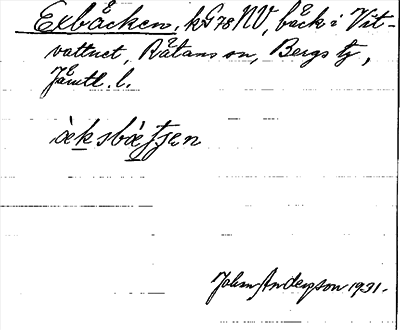 Exbäcken, kG78NV, bäck i Vit-
vattnet, Rätans sn, Bergs tg,
Jämtl. l.
ὰeksbὰeʄʄen
John Anderson 1931.